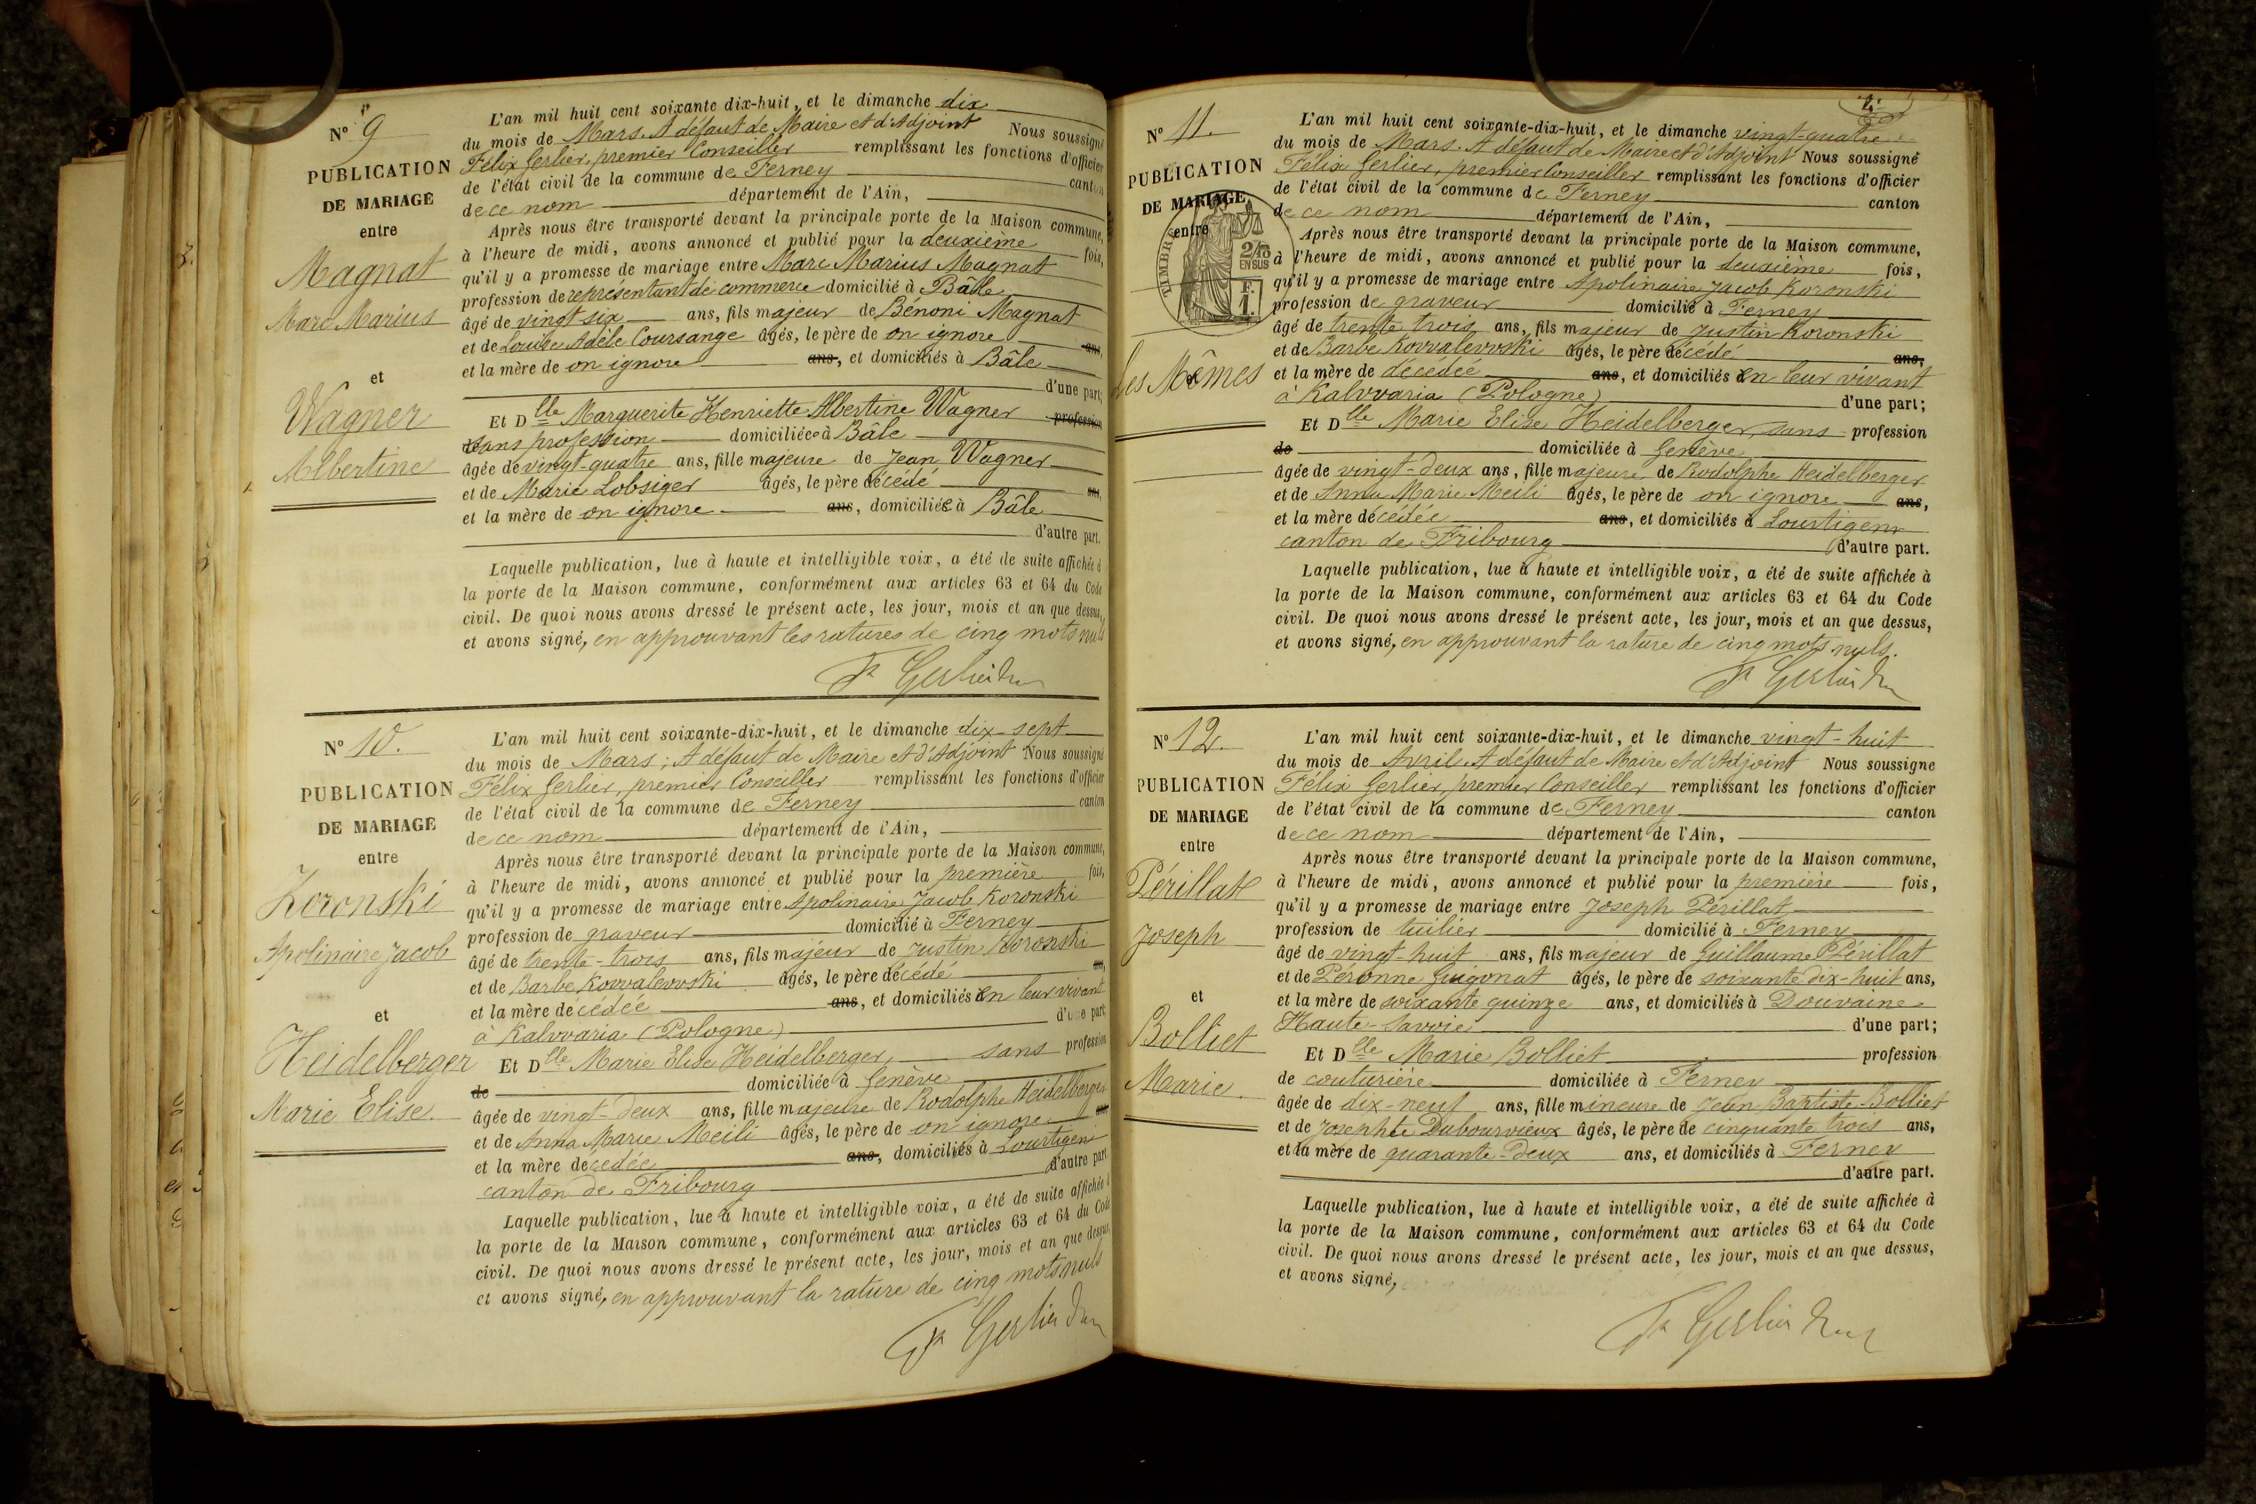 N° 9
PUBLICATION
DE MARIAGE
entre
Magnat
Marc Marius
et
Wagner
Albertine
L'an mil huit cent soixante dix-huit, et le dimanche dix
du mois de Mars. A défaut de Maire et d'Adjoint Nous soussigné
Félix Gerlier, premier Conseiller remplissant les fonctions d'officier
de l'état civil de la commune de Ferney canton
de ce nom département de l'Ain,
Après nous être transporté devant la principale porte de la Maison commune,
à l'heure de midi, avons annoncé et publié pour la deuxième fois,
qu'il y a promesse de mariage entre Marc Marius Magnat
profession de représentant de commerce domicilié à Bâle
âgé de vingt six ans, fils majeur de Bénoni Magnat
et de Louise Adèle Coursange âgés, le père de on ignore ans,
et la mère de on ignore ans, et domiciliés à Bâle
d'une part;
Et Dlle Marguerite Henriette Albertine Wagner profession
de sans profession domiciliée à Bâle
âgée de vingt-quatre ans, fille majeure de Jean Wagner
et de Marie Lobsiger âgés, le père décédé ans,
et la mère de on ignore ans, domiciliée à Bâle
d'autre part.
Laquelle publication, lue à haute et intelligible voix, a été de suite affichée à
la porte de la Maison commune, conformément aux articles 63 et 64 du Code
civil. De quoi nous avons dressé le présent acte, les jour, mois et an que dessus,
et avons signé, en approuvant les ratures de cinq mots nuls
N° 10.
PUBLICATION
DE MARIAGE
entre
Koronski
Apolinaire Jacob
et
Heidelberger
Marie Elise.
L'an mil huit cent soixante-dix-huit, et le dimanche dix-sept
du mois de Mars; A défaut de Maire et d'Adjoint Nous soussigné
Félix Gerlier, premier Conseiller remplissant les fonctions d'officier
de l'état civil de la commune de Ferney canton
de ce nom département de l'Ain,
Après nous être transporté devant la principale porte de la Maison commune,
à l'heure de midi, avons annoncé et publié pour la première fois,
qu'il y a promesse de mariage entre Apolinaire Jacob Koronski
profession de graveur domicilié à Ferney
âgé de trente-trois ans, fils majeur de Justin Koronski
et de Barbe Kovvalevvski âgés, le père décédé ans,
et la mère décédée ans, et domiciliés en leur vivant
à Kalvvaria (Pologne) d'une part
Et Dlle Marie Elise Heidelberger, sans profession
de domiciliée à Genève
âgée de vingt-deux ans, fille majeure de Rodolphe Heidelberger
et de Anna Marie Meili âgés, le père de on ignore ans
et la mère décédée ans, domiciliés à Lourtigen
canton de Fribourg d'autre part
Laquelle publication, lue à haute et intelligible voix, a été de suite affichée à
la porte de la Maison commune, conformément aux articles 63 et 64 du Code
civil. De quoi nous avons dressé le présent acte, les jour, mois et an que dessus,
et avons signé, en approuvant la rature de cinq mots nuls
N° 11.
PUBLICATION
DE MARIAGE
entre
TIMBRE
2/10
EN SUS
F.
1.
Les Mêmes
L'an mil huit cent soixante-dix-huit, et le dimanche vingt-quatre
du mois de Mars. A défaut de Maire et d'Adjoint Nous soussigné
Félix Gerlier, premier Conseiller remplissant les fonctions d'officier
de l'état civil de la commune de Ferney canton
de ce nom département de l'Ain,
Après nous être transporté devant la principale porte de la Maison commune,
à l'heure de midi, avons annoncé et publié pour la deuxième fois,
qu'il y a promesse de mariage entre Apolinaire Jacob Koronski
profession de graveur domicilié à Ferney
âgé de trente trois ans, fils majeur de Justin Koronski
et de Barbe Kovvalevvski âgés, le père décédé ans,
et la mère de décédée ans, et domiciliés en leur vivant
à Kalvvaria (Pologne) d'une part;
Et Dlle Marie Elise Heidelberger, sans profession
de domiciliée à Genève
âgée de vingt-deux ans, fille majeure de Rodolphe Heidelberger
et de Anna Marie Meili âgés, le père de on ignore ans,
et la mère décédée ans, et domiciliés à Lourtigen
canton de Fribourg d'autre part.
Laquelle publication, lue à haute et intelligible voix, a été de suite affichée à
la porte de la Maison commune, conformément aux articles 63 et 64 du Code
civil. De quoi nous avons dressé le présent acte, les jour, mois et an que dessus,
et avons signé, en approuvant la rature de cinq mots nuls.
N° 12.
PUBLICATION
DE MARIAGE
entre
Périllat
Joseph
et
Bolliet
Marie.
L'an mil huit cent soixante-dix-huit, et le dimanche vingt-huit
du mois de Avril. A défaut de Maire et d'Adjoint Nous soussigné
Félix Gerlier, premier Conseiller remplissant les fonctions d'officier
de l'état civil de la commune de Ferney canton
de ce nom département de l'Ain,
Après nous être transporté devant la principale porte de la Maison commune,
à l'heure de midi, avons annoncé et publié pour la première fois,
qu'il y a promesse de mariage entre Joseph Périllat
profession de tuilier domicilié à Ferney
âgé de vingt-huit ans, fils majeur de Guillaume Périllat
et de Péronne Guigonat âgés, le père de soixante dix-huit ans,
et la mère de soixante quinze ans, et domiciliés à Douvaine
Haute-Savoie d'une part;
Et Dlle Marie Bolliet profession
de couturière domiciliée à Ferney
âgée de dix-neuf ans, fille mineure de Jean Baptiste Bolliet
et de Josephte Dubourvieux âgés, le père de cinquante trois ans,
et la mère de quarante-deux ans, et domiciliés à Ferney
d'autre part.
Laquelle publication, lue à haute et intelligible voix, a été de suite affichée à
la porte de la Maison commune, conformément aux articles 63 et 64 du Code
civil. De quoi nous avons dressé le présent acte, les jour, mois et an que dessus,
et avons signé,